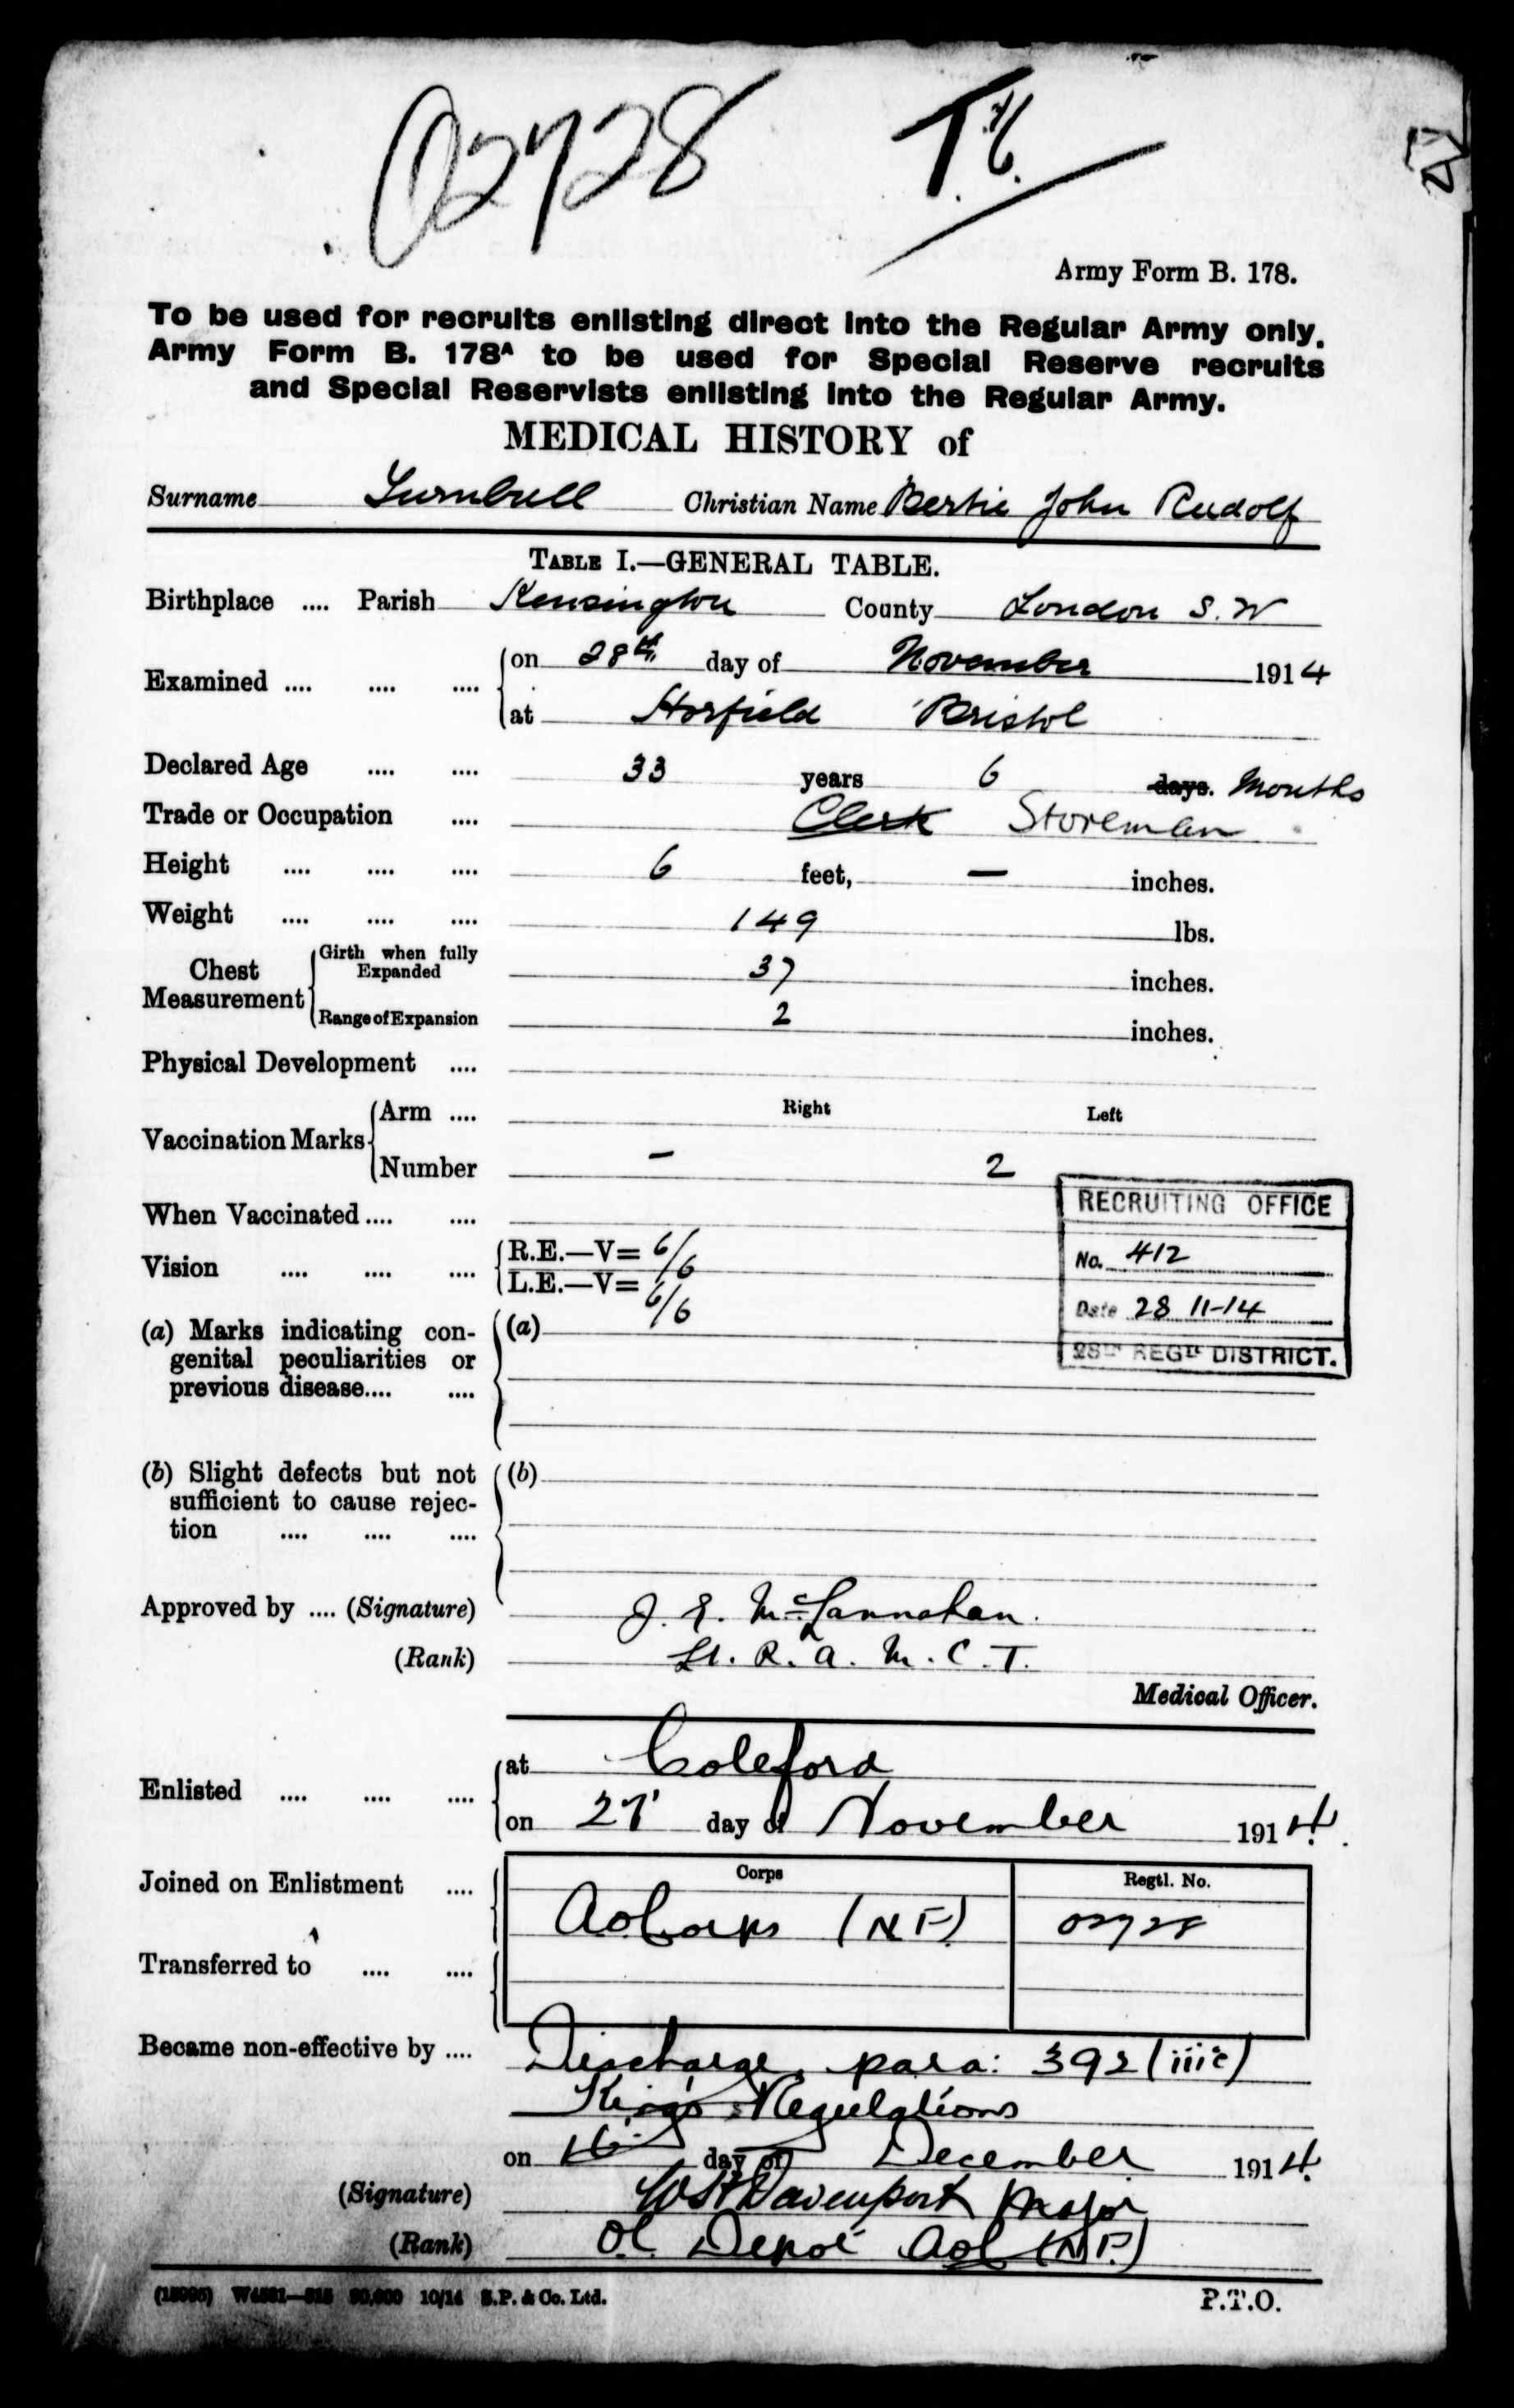 02728 T.
Army Form B. 178.
To be used for recruits enlisting direct into the Regular Army only.
Army Form B. 178A to be used for Special Reserve recruits
and Special Reservists enlisting into the Regular Army.
MEDICAL HISTORY of
Surname Turnbull Christian Name Bertie John Rudolf
TABLE I.—GENERAL TABLE.
Birthplace .... Parish Kensington County London S.W
Examined .... .... .... on 28th day of November 1914
at Horfield Bristol
Declared Age .... .... 33 years 6 days. Months
Trade or Occupation .... Clerk Storeman
Height .... .... .... 6 feet, — inches.
Weight .... .... .... 149 lbs.
Chest Measurement Girth when fully Expanded 37 inches.
Range of Expansion 2 inches.
Physical Development ....
Vaccination Marks Arm .... Right Left
Number — 2
When Vaccinated .... ....
Vision .... .... .... R.E.—V= 6/6
L.E.—V= 6/6
RECRUITING OFFICE
No. 412
Date 28 11-14
28TH REGTL DISTRICT.
(a) Marks indicating con- (a)
genital peculiarities or
previous disease.... ....
(b) Slight defects but not (b)
sufficient to cause rejec-
tion .... .... ....
Approved by .... (Signature) J. E. McLannahan.
(Rank) Lt. R.A.M.C.T.
Medical Officer.
Enlisted .... .... .... at Coleford
on 27 day of November 1914.
Corps Regtl. No.
Joined on Enlistment .... AoCorps (NF) 02728
Transferred to .... ....
Became non-effective by .... Discharge para: 392 (iiic)
Kings Regulations
on 16 day of December 1914.
(Signature) Davenport Major
(Rank) OC Depot AoC (N.F.)
10/14 S.P. & Co. Ltd.
P.T.O.